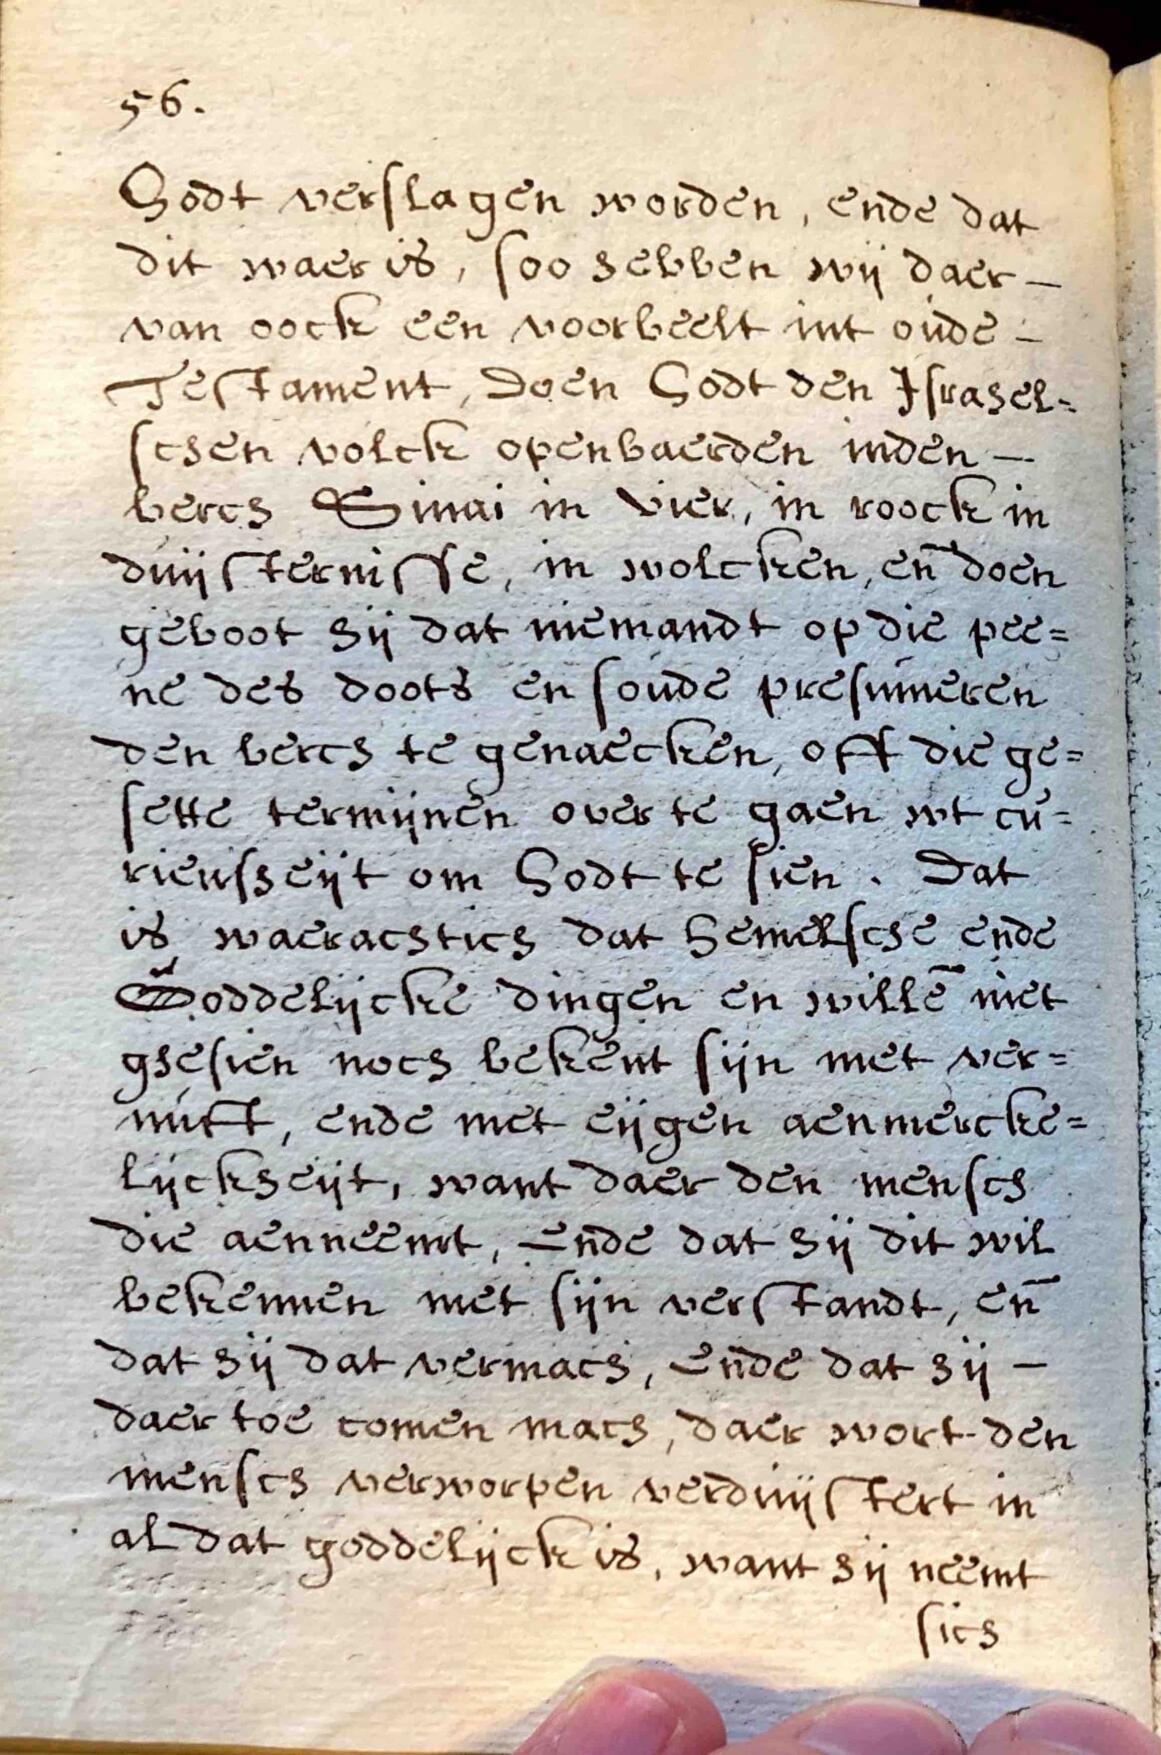 56.
Godt verslagen worden, ende dat
dit waer is, soo hebben wij daer —
van oock een voorbeelt int oude —
Testament, doen Godt den Israhel=
schen volck openbaerden inden —
berch Sinai in vier, in roock in
duijsternisse, in wolcken, en̄ doen
geboot hij dat niemandt op die pee=
ne des doots en soude presumeren
den berch te genaecken, off die ge=
sette termijnen over te gaen wt cu=
rieusheijt om Godt te sien. Dat
is waerachtich dat hemelsche ende
Goddelijcke dingen en willē niet
ghesien noch bekent sijn met ver=
nuft, ende met eijgen aenmercke=
lijckheijt, want daer den mensch
die aenneemt, ende dat hij dit wil
bekennen met sijn verstandt, en̄
dat hij dat vermach, ende dat hij —
daer toe comen mach, daer wort den
mensch verworpen verduijstert in
al dat goddelijck is, want hij neemt
sich